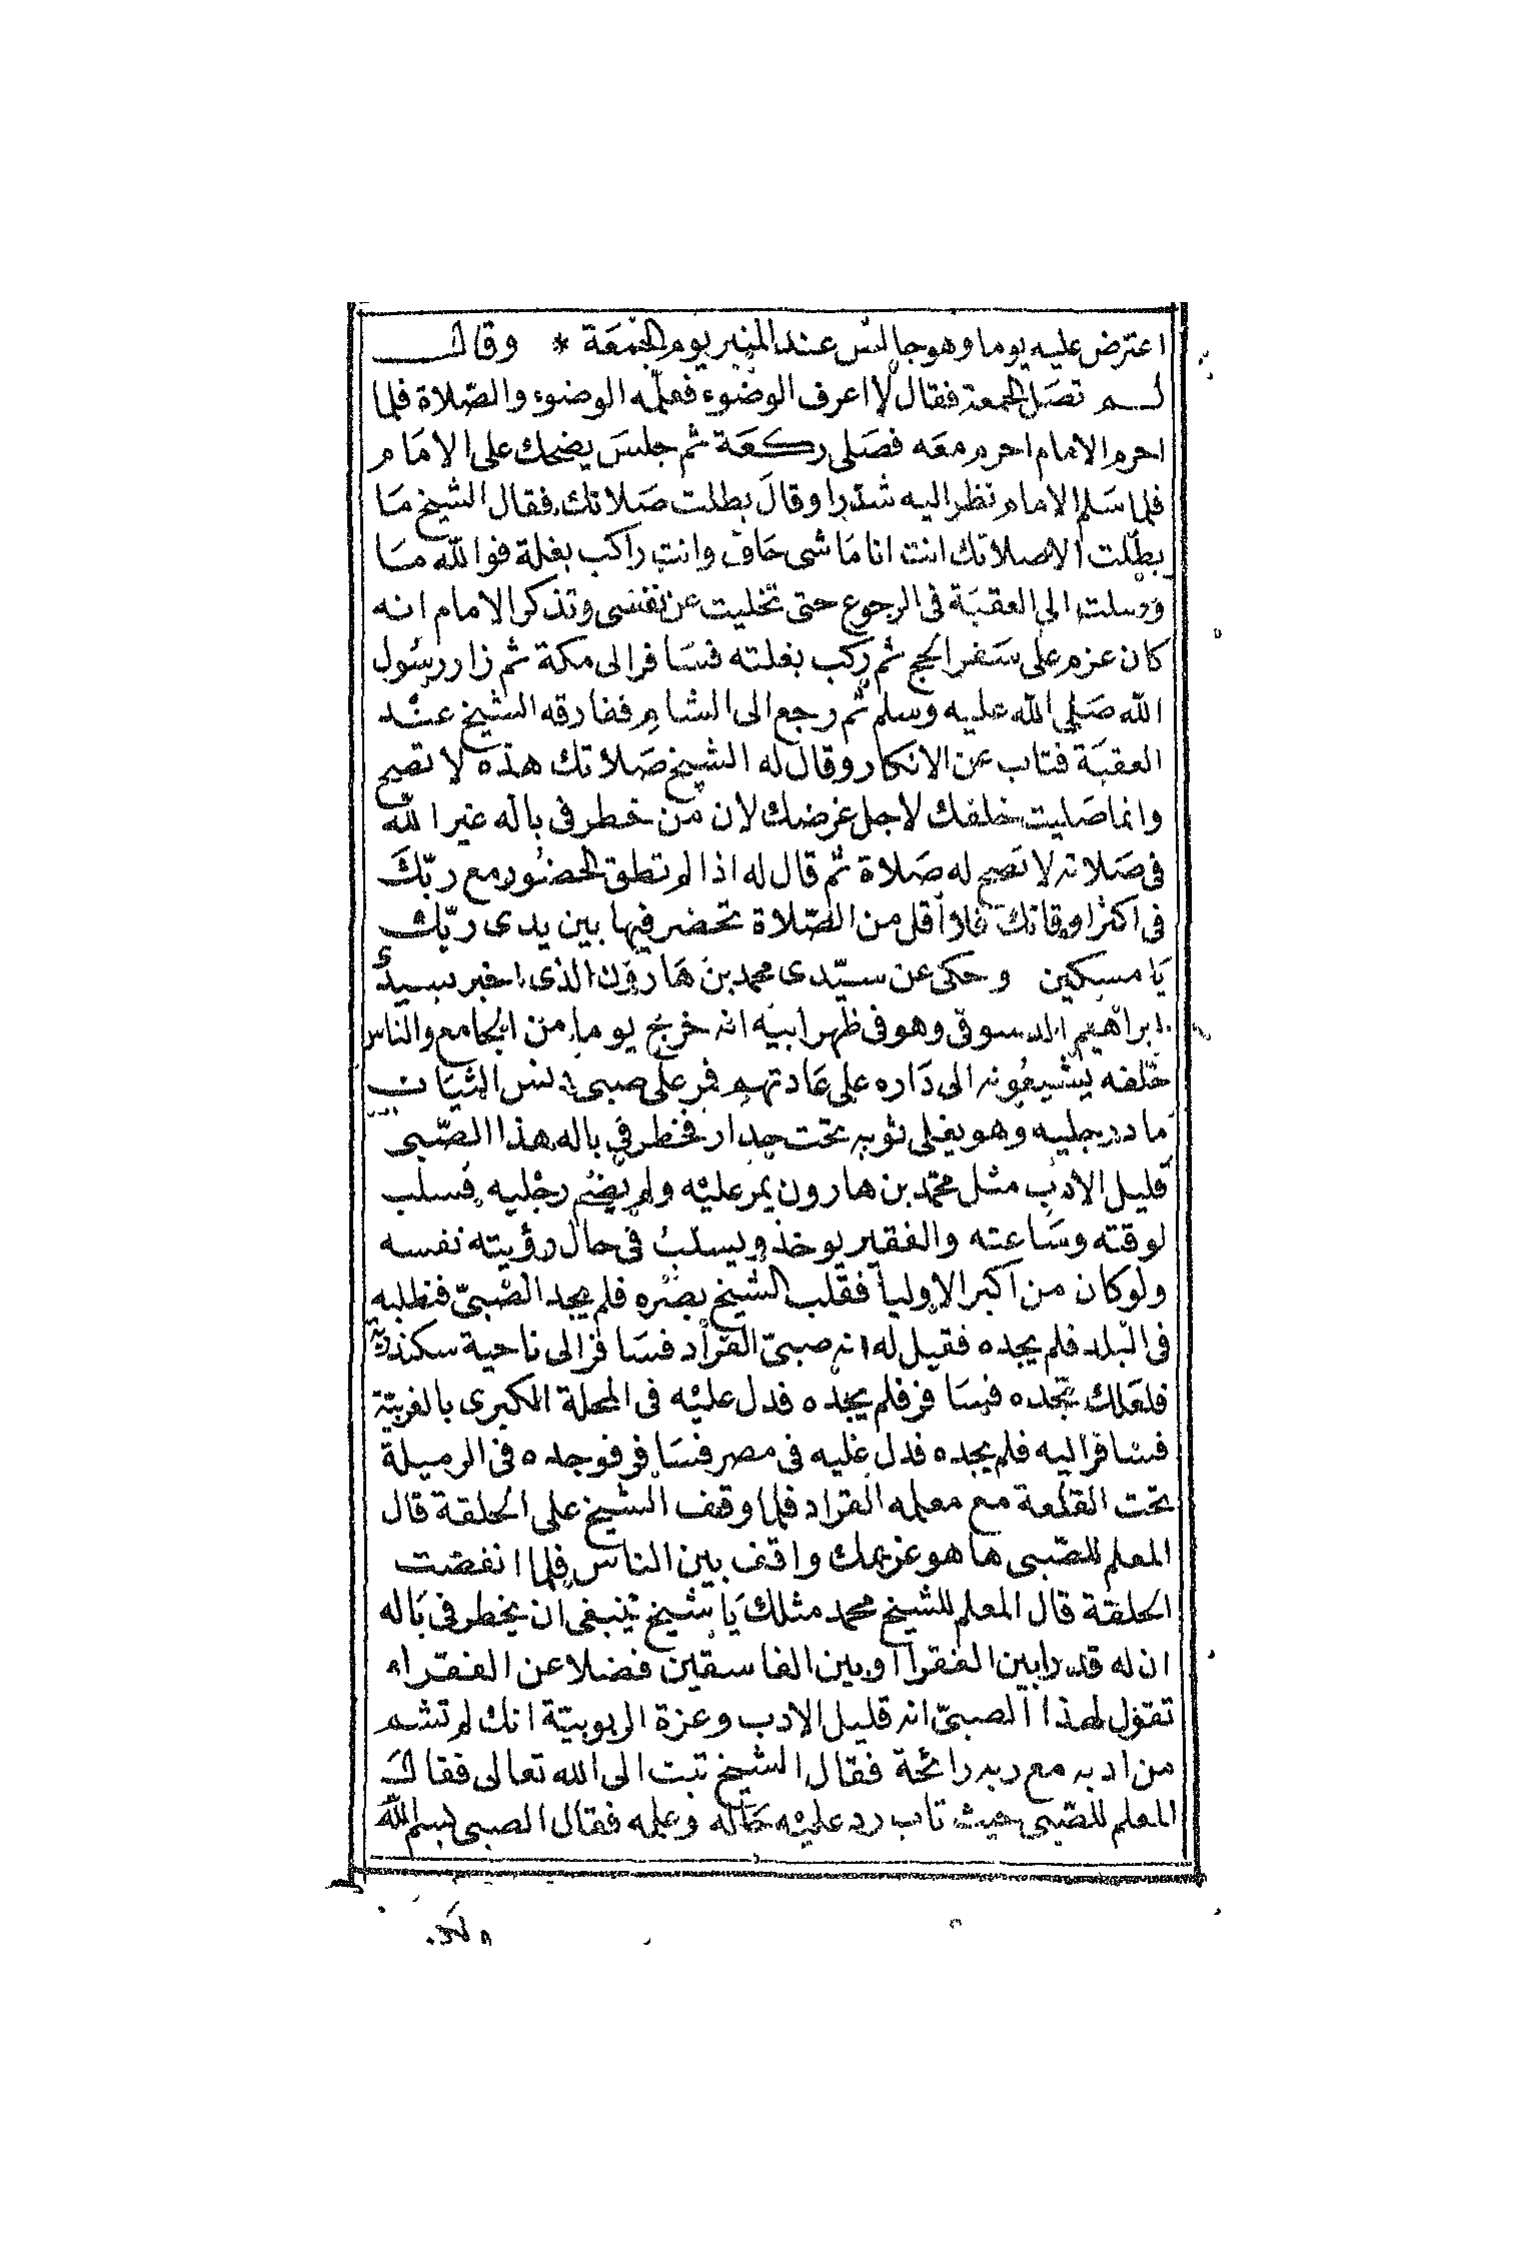 اعترض عليه يوما وهو جالس عند المنبر يوم الجمعة * وقال
لم تصل الجمعة فقال لا اعرف الوضوء فعلمه الوضوء والصلاة فلما
احرم الامام احرم معه فصلى ركعة ثم جلس يضحك على الامام
فلما سلم الامام نظر اليه شذرا وقال بطلت صلاتك فقال الشيخ ما
بطلت الاصلاتك انت انا ماشى حاف وانت راكب بغلة فوالله ما
وصلت الى العقبة فى الرجوع حتى تخليت عن نفسى وتذكر الامام انه
كان عزم على سفر الحج ثم ركب بغلته فسافر الى مكة ثم زار رسول
الله صلى الله عليه وسلم ثم رجع الى الشام ففارقه الشيخ عند
العقبة فتاب عن الانكار وقال له الشيخ صلاتك هذه لا تصح
وانما صليت خلفك لاجل غرضك لان من خطر فى باله غير الله
فى صلاته لا تصح له صلاة ثم قال له اذا لم تطق الحضور مع ربك
فى اكثر اوقاتك فلا اقل من الصلاة تحضر فيها بين يدى ربك
يا مسكين وحكى عن سيدى محمد بن هارون الذى اخبر بسيدى
ابراهيم الدسوقى وهو فى ظهر ابيه انه خرج يوما من الجامع والناس
خلفه يشيعونه الى داره على عادتهم فمر على صبى دنس الثياب
ماد رجليه وهو يفلى ثوبه تحت جدار فخطر فى باله هذا الصبى
قليل الادب مثل محمد بن هارون يمر عليه ولم يضم رجليه فسلب
لوقته وساعته والفقير يوخذ ويسلب فى حال رؤيته نفسه
ولو كان من اكبر الاوليا فقلب الشيخ بصره فلم يجد الصبى فطلبه
فى البلد فلم يجده فقيل له انه صبى القراد فسافر الى ناحية سكندرية
فلعلك تجده فسافر فلم يجده فدل عليه فى المحلة الكبرى بالغربية
فسافر اليه فلم يجده فدل عليه فى مصر فسافر فوجده فى الرميلة
تحت القلعة مع معلمه القراد فلما وقف الشيخ على الحلقة قال
المعلم للصبى ها هو غريمك واقف بين الناس فلما انفضت
الحلقة قال المعلم للشيخ محمد مثلك يا شيخ ينبغى ان يخطر فى باله
ان له قدرا بين الفقرا او بين الفاسقين فضلا عن الفقراء
تقول لهذا الصبى انه قليل الادب وعزة الربوبية انك لم تشم
من ادبه مع ربه رائحة فقال الشيخ تبت الى الله تعالى فقال
المعلم للصبى حيث تاب رد عليه حاله وعلمه فقال الصبى بسم الله